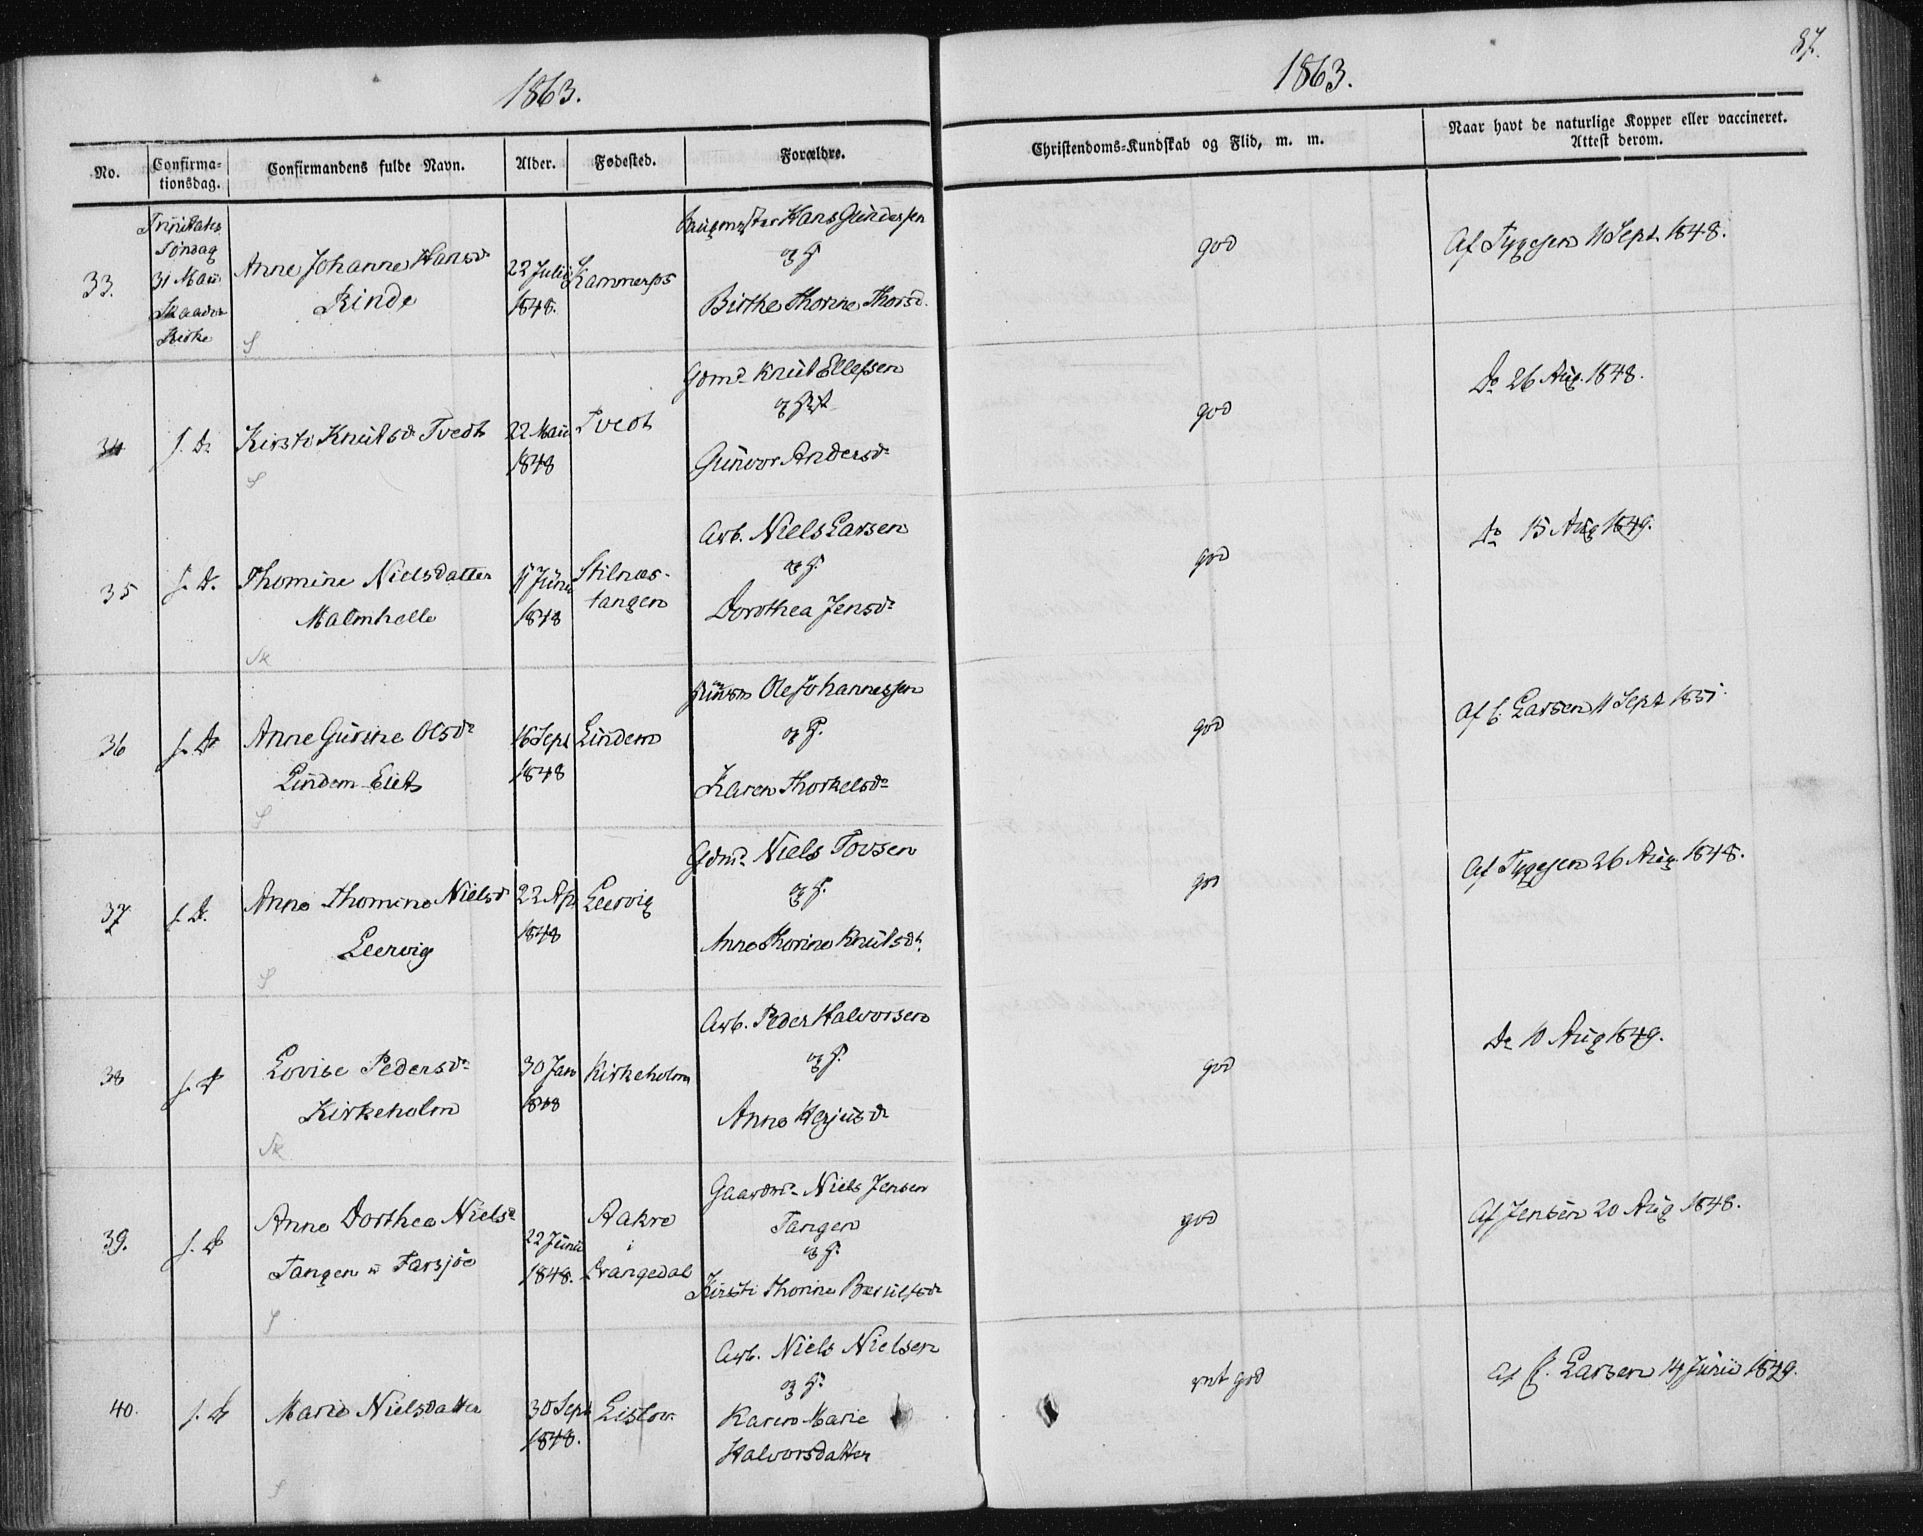 1863.
1863.
87.
No.
Confirma-
tionsdag.
Confirmandens fulde Navn.
Alder.
Fødested.
Forældre.
Christendoms-Kundskab og Flid, m. m.
Naar havt de naturlige Kopper eller vaccineret.
Attest derom.
33.
Trinitatis
Søndag
31 Maii
Skaadø
Kirke
Anne Johanne Hansd
Rinde
S
22 Julii
1848.
Kammerfos
Hans Gundersen
og H
Birthe Thorine Thorsd.
god
Af Tygesen 11 Sept. 1848.
34
f. D.
Kirsti Knutsd Tvedt
S
22 Maii
1848
Tvedt
Gdmd Knut Ellefsen
Gunvor Andersd
god
Do 26 Aug. 1848.
35
f. D.
Thomine Nielsdatter
Malmhelle
Sk
11 Juni
1848
Stilnæs-
tangen
Arb. Niels Larsen
og H.
Dorothea Jensd
god
Do 15 Aug 1849.
36
f. D
Anne Gurine Olsd
Lindem Eiet
S
16 Sept
1848
Lindem
Ole Johannessen
og H.
Karen Thorkelsd
god
Af C. Larsen 11 Sept 1851.
37
f. D.
Anne Thomine Nielsd
Leervig
S
22 Ap
1848
Leervig
Gdmd Niels Tovsen
og H.
Anne Thorine Knutsd.
god
Af Tygesen 26 Aug. 1848.
38
f. D
Lovise Pedersd
Kirkeholm
Sk
30 Jan
1848
Kirkeholm
Arb. Peder Halvorsen
og H.
Anne Kerjusd
god
Do 10 Aug 1849.
39.
f. D
Anne Dorthea Nielsd
Tangen v Farsjøe
S
22 Junii
1848.
Aakre
i
Drangedal
Gaardmd Niels Jensen
Tangen
og H.
Kirsti Thorine Bærulfsd
god
Af Jensen 20 Aug 1848.
40.
f. D
Marie Nielsdatter
S
30 Sept
1848.
Eislow
Arb. Niels Nielsen
og H.
Karen Marie
Halvorsdatter
mt god
Af C. Larsen 14 Junii 1849.